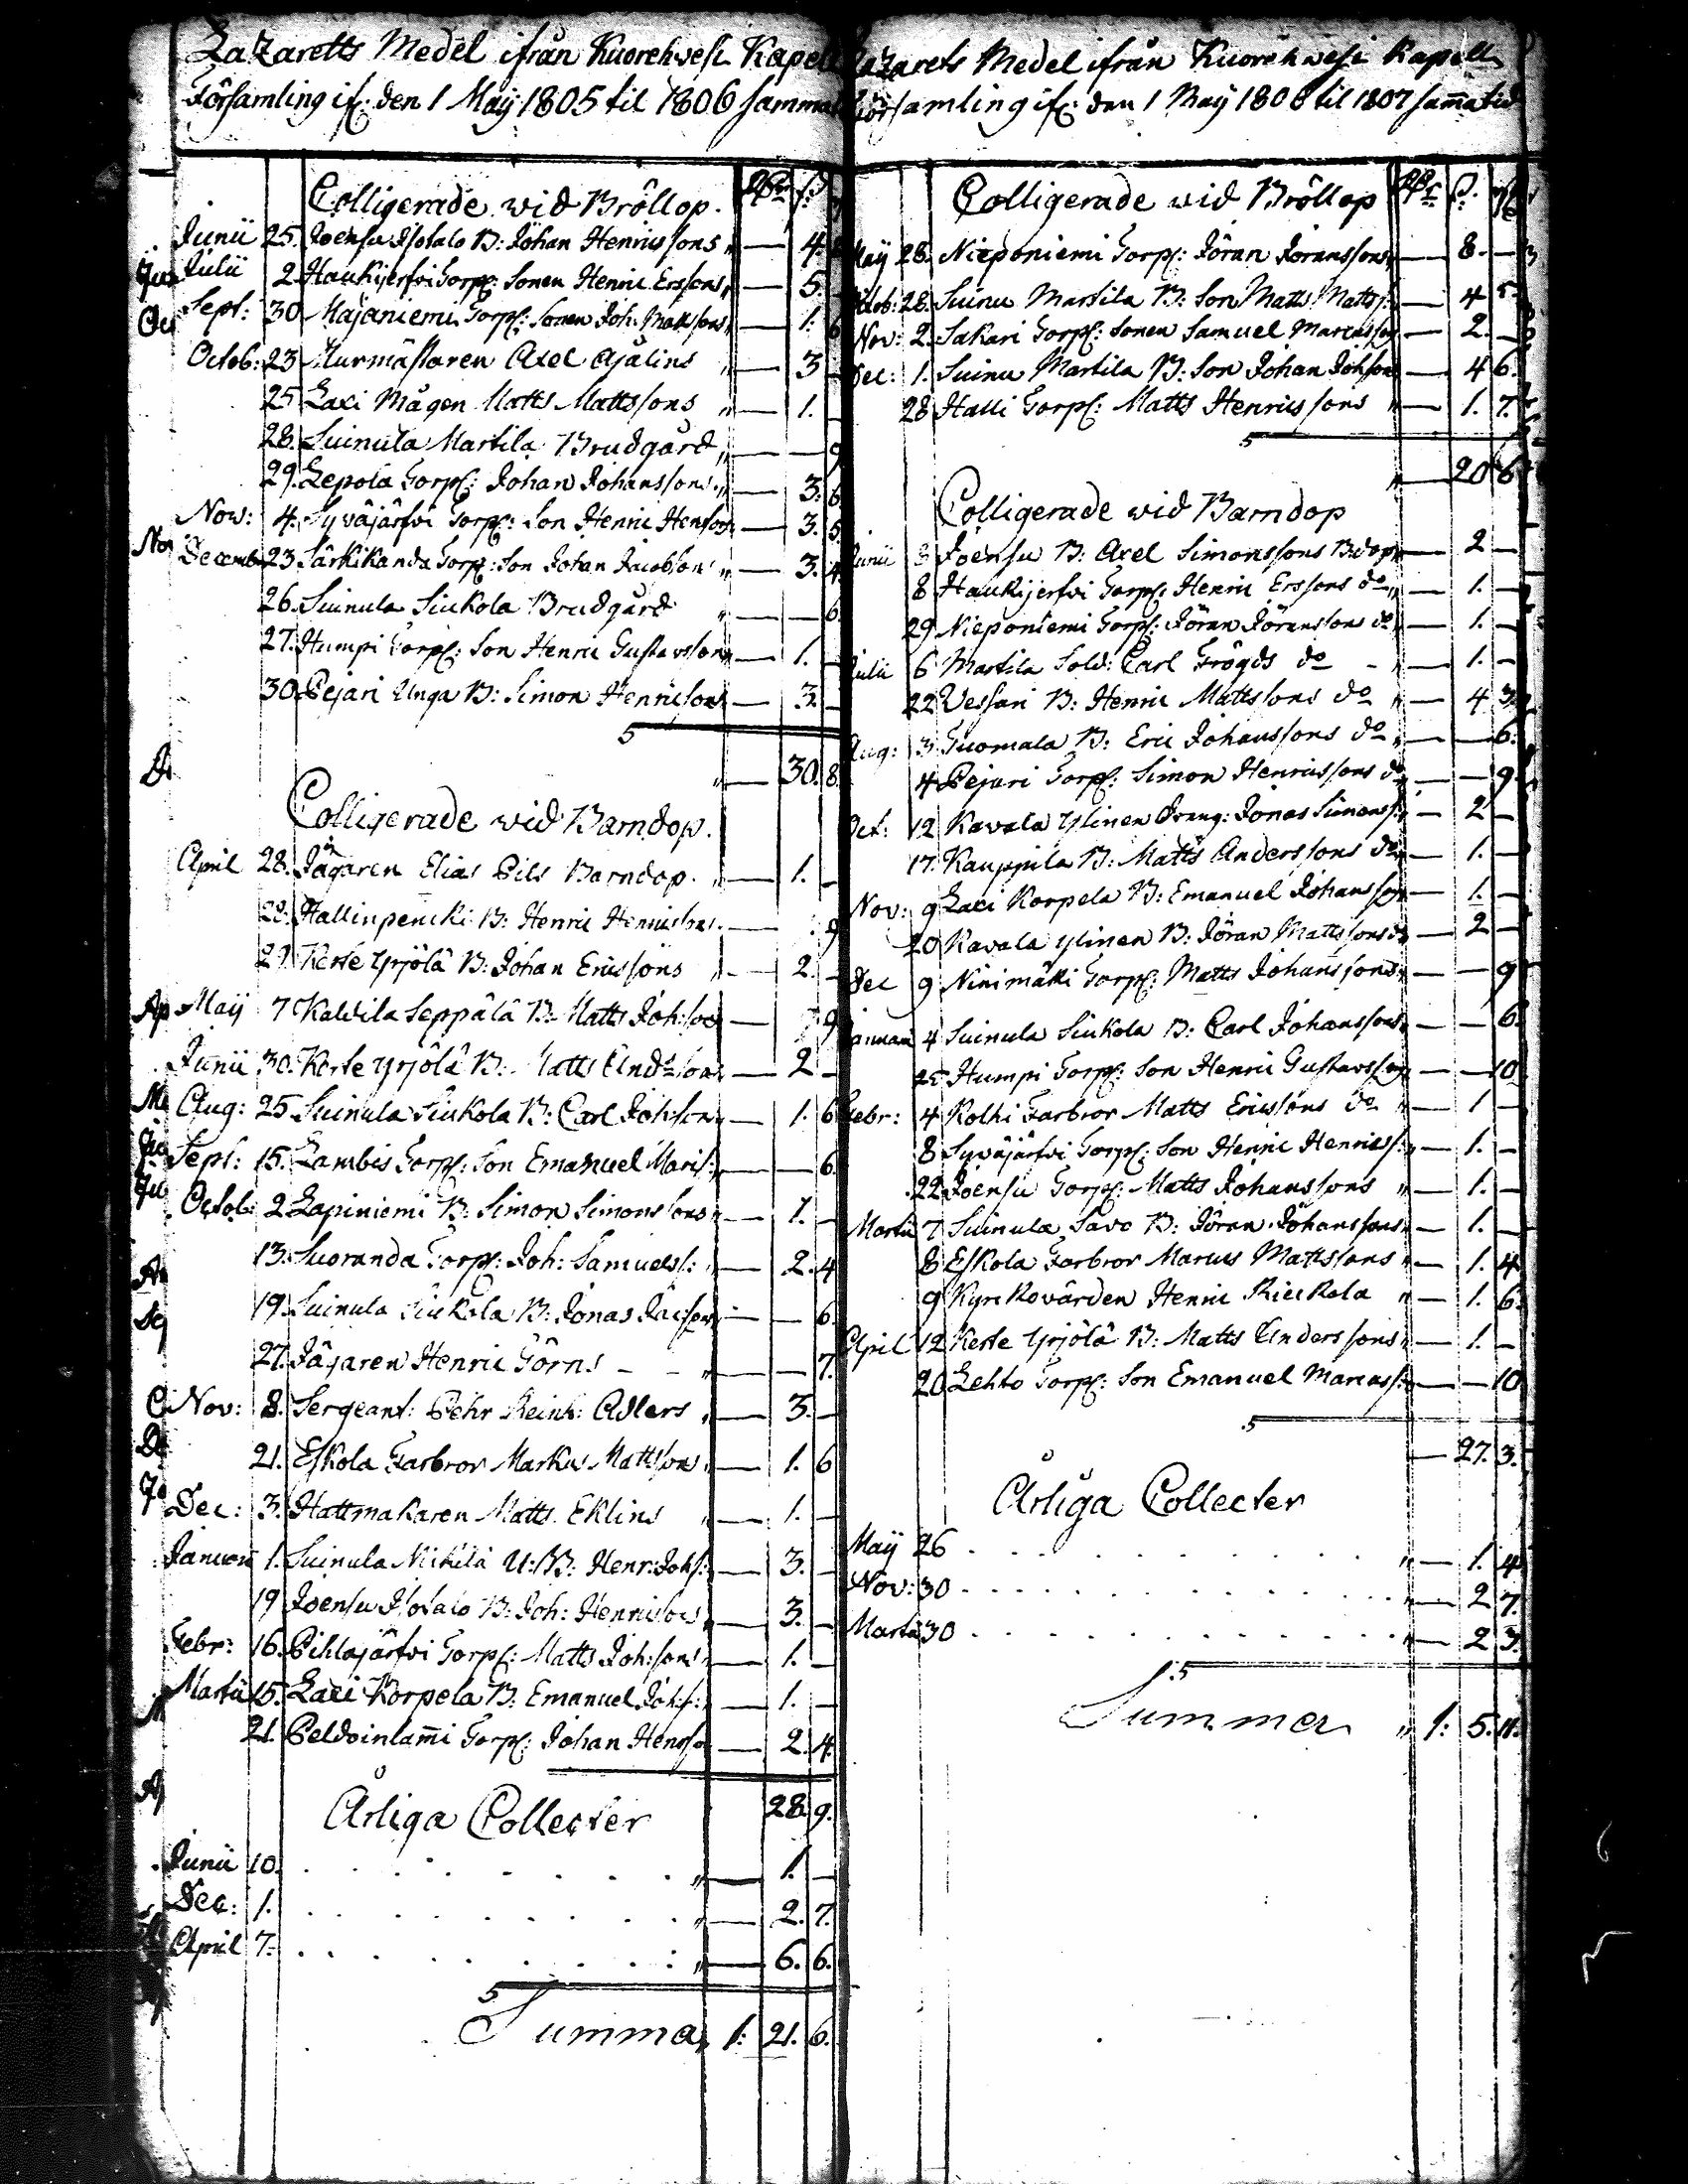 Lazaretts Medel ifrån Kuorehwesi Kapell
Församling if: den 1 Maij 1805 til 1806 samma
Colligerade wid Bröllop.
Junii 25. Joensu Isotalo B: Johan Henricssons „ — 4.
Julii 2. Haukijerfvi Torp: Sonen Henric Ersons „ — 5. —
Sept: 30 Majaniemi Torp: Sonen Joh: Mattsons „ — 1. 6
Octob: 23 Murmästaren Axel Ajalins „ — 3 —
25 Laxi Mågen Matts Mattssons „ — 1. —
28. Suinula Martila Brudgård „ — — 9
29. Lepola Torp: Johan Johanssons „ — 3. 6
Nov: 4. Syväjärfvi Torp: Son Henric Hensons — 3. 5
Decemb 23 Särkikanda Torp: Son Johan Jacobsons „ — 3. 4.
26. Suinula Siukola Brudgård „ — — 6.
27. Humpi Torp: Son Henric Gustavssons „ — 1. —
30. Pejari Unga B: Simon Henricsons — 3. —
5
„ — 30. 8.
Colligerade wid Barndop.
April 28. Jägaren Elias Pils Barndop. „ — 1. —
28. Hallinpencki B: Henric Henricsons. — 9
29. Kerte Yrjölä B: Johan Ericssons „ — 2. —
Maij 7 Kalvila Seppälä B: Matts Joh:sons — 9
Junii 30. Kerte Yrjölä B: Matts And:sons — 2 —
Aug: 25 Suinula Siukola B: Carl Joh:sons — 1. 6
Sept: 15. Lambis Torp: Son Emanuel Marc: — — 6.
Octob: 2 Lapiniemi B: Simon Simonssons „ — 1. —
13. Suoranda Torp: Joh: Samuelss: „ — 2. 4
19. Suinula Siukola B: Jonas Jacsons — — 6.
27. Jägaren Henric Görns — — „ — 7.
Nov: 8. Sergeant: Pehr Reinh: Adlers „ — 3. —
21. Eskola Farbror Markus Mattsons „ — 1. 6
Dec: 3. Hattmakaren Matts Eklins „ — 1. —
Januari 1. Suinula Nickilä U: B: Henr: Johs: — 3. —
19 Joensu Isotalo B: Joh: Henricsons — 3. —
Febr: 16. Pihlajärfvi Torp: Matts Joh:sons „ — 1. —
Martii 15. Laxi Korpela B: Emanuel Joh:s: — 1. —
21. Peldoinlam̄i Torp: Johan Henrsons — 2. 4.
Årliga Collecter 28. 9.
Junii 10. . . . . . . „ — 1. —
Dec: 1. . . . . . . „ — 2. 7.
April 7. . . . . . . „ — 6. 6.
5
Summa „ 1: 21. 6.
Lazarets Medel ifrån Kuorehwesi Kapell
Församling if: den 1 Maij 1806 til 1807 sam̄a tid
Colligerade wid Bröllop
Maij 28. Nieponiemi Torp: Jöran Joranssons „ — 8. —
Octob: 28. Suinu Martila B: Son Matts Matts: — 4 5.
Nov: 2. Sakari Torp: Sonen Samuel Marcusson — 2. —
Dec: 1. Suinu Martila B: Son Johan Johsons — 4 6.
28 Halli Torp: Matts Henricssons „ — 1. 7.
5
„ — 20 6
Colligerade wid Barndop
Junii 3 Joensu B: Axel Simonssons B:dop „ — 2 —
8 Haukijerfvi Torp: Henric Erssons do „ — 1. —
29 Nieponiemi Torp: Jöran Jöranssons do — 1. —
Julii 6 Martila Sold: Carl Frögds do — „ — 1. —
22 Vessari B: Henric Mattssons do „ — 4 3.
Aug: 3. Tuomala B: Eric Johanssons do „ — — 6.
4 Pejari Torp: Simon Henricssons do — — 9.
Oct: 12 Kavala Ylinen Dräng: Jonas Simonss: — 2 —
17. Kauppila B: Matts Anderssons do — 1. —
Nov: 9 Laxi Korpela B: Emanuel Johanssons — 1. —
20 Kavala Ylinen B: Jöran Mattssons do — 2 —
Dec 9 Ninimäki Torp: Matts Johanssons „ — — 9
Januari 4 Suinula Siukola B: Carl Johanssons „ — — 6.
25 Humpi Torp: Son Henric Gustavssons — — 10
Febr: 4 Kolhi Farbror Matts Ericssons do „ — 1 —
8 Syväjärfvi Torp: Son Henric Henricss: „ — 1. —
22 Joensu Torp: Matts Johanssons „ — 1. —
Martii 7 Suinula Savo B: Jöran Johanssons „ — 1. —
8 Eskola Farbror Marcus Mattssons „ — 1. 4
9 Kyrckovärden Henric Rieckola „ — 1. 6.
April 12 Kerte Yrjölä B: Matts Anderssons „ — 1. —
20 Lehto Torp: Son Emanuel Marcuss: — — 10
5
— 27. 3.
Årliga Collecter
Maij 26 . . . . . . . „ — 1. 4
Nov: 30 . . . . . . . „ — 2 7.
Martii 30 . . . . . . . „ — 2 3.
5
Summa „ 1: 5. 11.